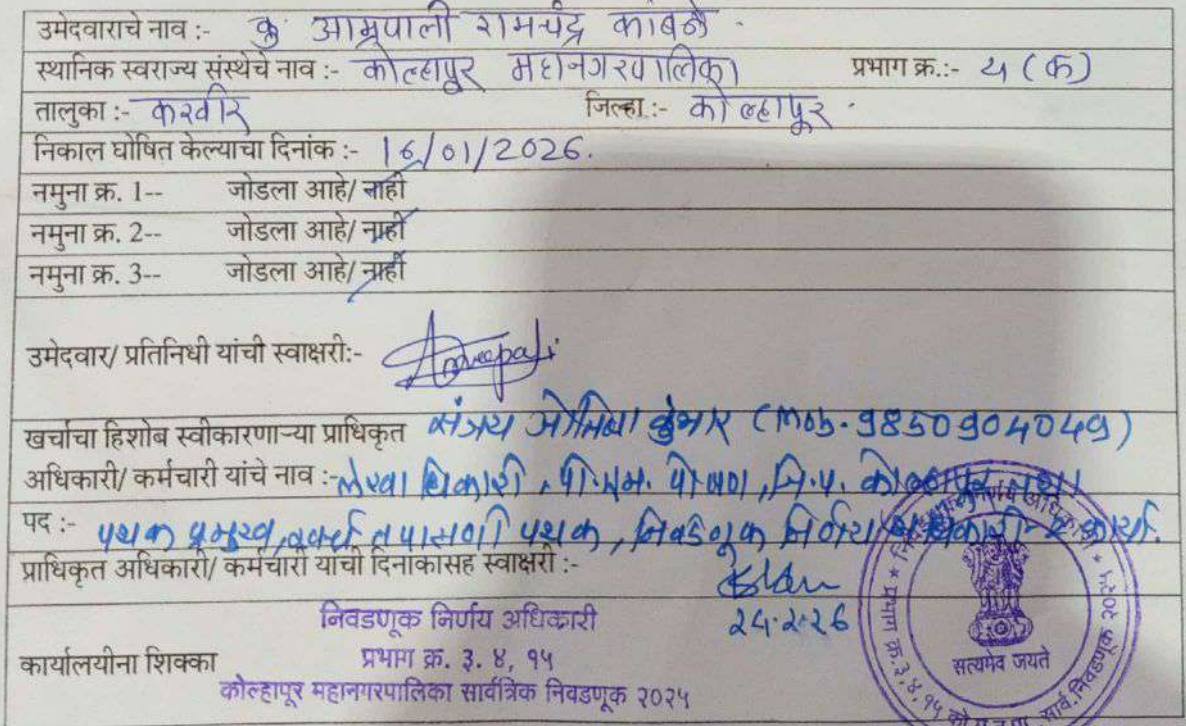 उमेदवाराचे नाव :- कु आम्रपाली रामचंद्र कांबळे.
स्थानिक स्वराज्य संस्थेचे नाव :- कोल्हापूर महानगरपालिका प्रभाग क्र.:- ४ (क)
तालुका :- करवीर जिल्हा :- कोल्हापूर.
निकाल घोषित केल्याचा दिनांक :- 16/01/2026.
नमुना क्र. 1-- जोडला आहे/ नाही
नमुना क्र. 2-- जोडला आहे/ नाही
नमुना क्र. 3-- जोडला आहे/ नाही
उमेदवार/ प्रतिनिधी यांची स्वाक्षरी:- Amrapali
खर्चाचा हिशोब स्वीकारणाऱ्या प्राधिकृत संजय जोतिबा कुंभार (Mob. 9850904049)
अधिकारी/ कर्मचारी यांचे नाव :- लेखाधिकारी, पी.एम. पोषण, जि.प. कोल्हापूर तथा
पद :- पथक प्रमुख, खर्च तपासणी पथक, निवडणूक निर्णय अधिकारी कार्या.
प्राधिकृत अधिकारी/ कर्मचारी यांची दिनांकासह स्वाक्षरी :-
24.2.26
निवडणूक निर्णय अधिकारी
कार्यालयीना शिक्का प्रभाग क्र. ३. ४, १५
कोल्हापूर महानगरपालिका सार्वत्रिक निवडणूक २०२५
सत्यमेव जयते